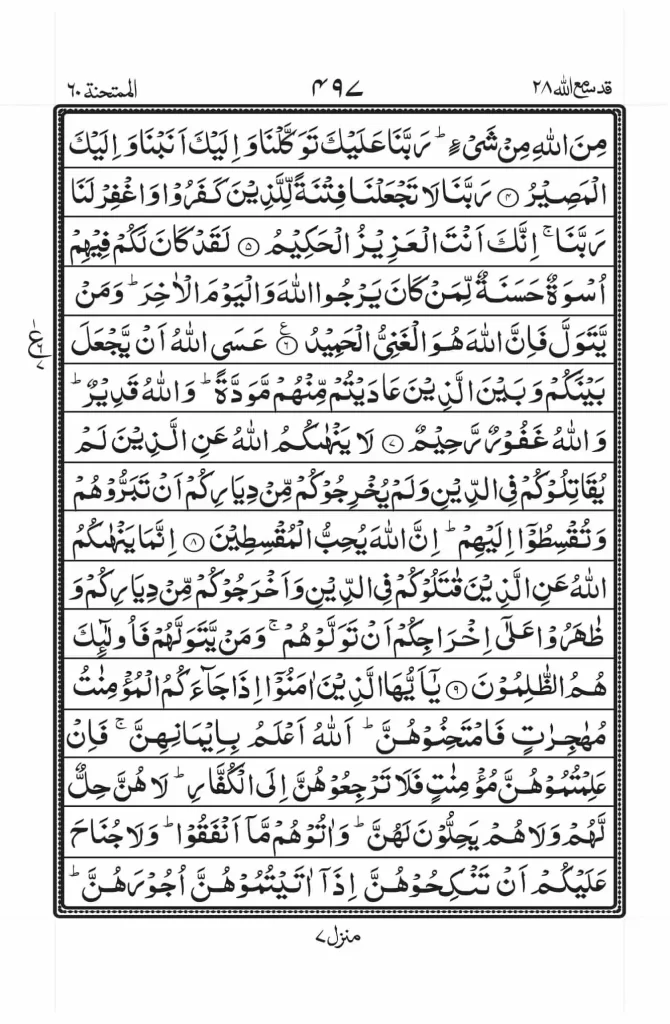 قد سمع الله ٢٨
٤٩٧
الممتحنة ٦٠
مِنَ اللّٰهِ مِنْ شَیْءٍ ؕ رَبَّنَا عَلَیْكَ تَوَكَّلْنَا وَ اِلَیْكَ اَنَبْنَا وَ اِلَیْكَ
الْمَصِیْرُ ﴿۴﴾ رَبَّنَا لَا تَجْعَلْنَا فِتْنَةً لِّلَّذِیْنَ كَفَرُوْا وَ اغْفِرْ لَنَا
رَبَّنَا ۚ اِنَّكَ اَنْتَ الْعَزِیْزُ الْحَكِیْمُ ﴿۵﴾ لَقَدْ كَانَ لَكُمْ فِیْهِمْ
اُسْوَةٌ حَسَنَةٌ لِّمَنْ كَانَ یَرْجُوا اللّٰهَ وَ الْیَوْمَ الْاٰخِرَ ؕ وَ مَنْ
یَّتَوَلَّ فَاِنَّ اللّٰهَ هُوَ الْغَنِیُّ الْحَمِیْدُ ﴿۶﴾ ع عَسَی اللّٰهُ اَنْ یَّجْعَلَ
بَیْنَكُمْ وَ بَیْنَ الَّذِیْنَ عَادَیْتُمْ مِّنْهُمْ مَّوَدَّةً ؕ وَ اللّٰهُ قَدِیْرٌ ؕ
وَ اللّٰهُ غَفُوْرٌ رَّحِیْمٌ ﴿۷﴾ لَا یَنْهٰىكُمُ اللّٰهُ عَنِ الَّذِیْنَ لَمْ
یُقَاتِلُوْكُمْ فِی الدِّیْنِ وَ لَمْ یُخْرِجُوْكُمْ مِّنْ دِیَارِكُمْ اَنْ تَبَرُّوْهُمْ
وَ تُقْسِطُوْۤا اِلَیْهِمْ ؕ اِنَّ اللّٰهَ یُحِبُّ الْمُقْسِطِیْنَ ﴿۸﴾ اِنَّمَا یَنْهٰىكُمُ
اللّٰهُ عَنِ الَّذِیْنَ قٰتَلُوْكُمْ فِی الدِّیْنِ وَ اَخْرَجُوْكُمْ مِّنْ دِیَارِكُمْ وَ
ظٰهَرُوْا عَلٰۤی اِخْرَاجِكُمْ اَنْ تَوَلَّوْهُمْ ۚ وَ مَنْ یَّتَوَلَّهُمْ فَاُولٰٓىِٕكَ
هُمُ الظّٰلِمُوْنَ ﴿۹﴾ یٰۤاَیُّهَا الَّذِیْنَ اٰمَنُوْۤا اِذَا جَآءَكُمُ الْمُؤْمِنٰتُ
مُهٰجِرٰتٍ فَامْتَحِنُوْهُنَّ ؕ اَللّٰهُ اَعْلَمُ بِاِیْمَانِهِنَّ ۚ فَاِنْ
عَلِمْتُمُوْهُنَّ مُؤْمِنٰتٍ فَلَا تَرْجِعُوْهُنَّ اِلَی الْكُفَّارِ ؕ لَا هُنَّ حِلٌّ
لَّهُمْ وَ لَا هُمْ یَحِلُّوْنَ لَهُنَّ ؕ وَ اٰتُوْهُمْ مَّاۤ اَنْفَقُوْا ؕ وَ لَا جُنَاحَ
عَلَیْكُمْ اَنْ تَنْكِحُوْهُنَّ اِذَاۤ اٰتَیْتُمُوْهُنَّ اُجُوْرَهُنَّ ؕ
ع
۶
۷
منزل ۷